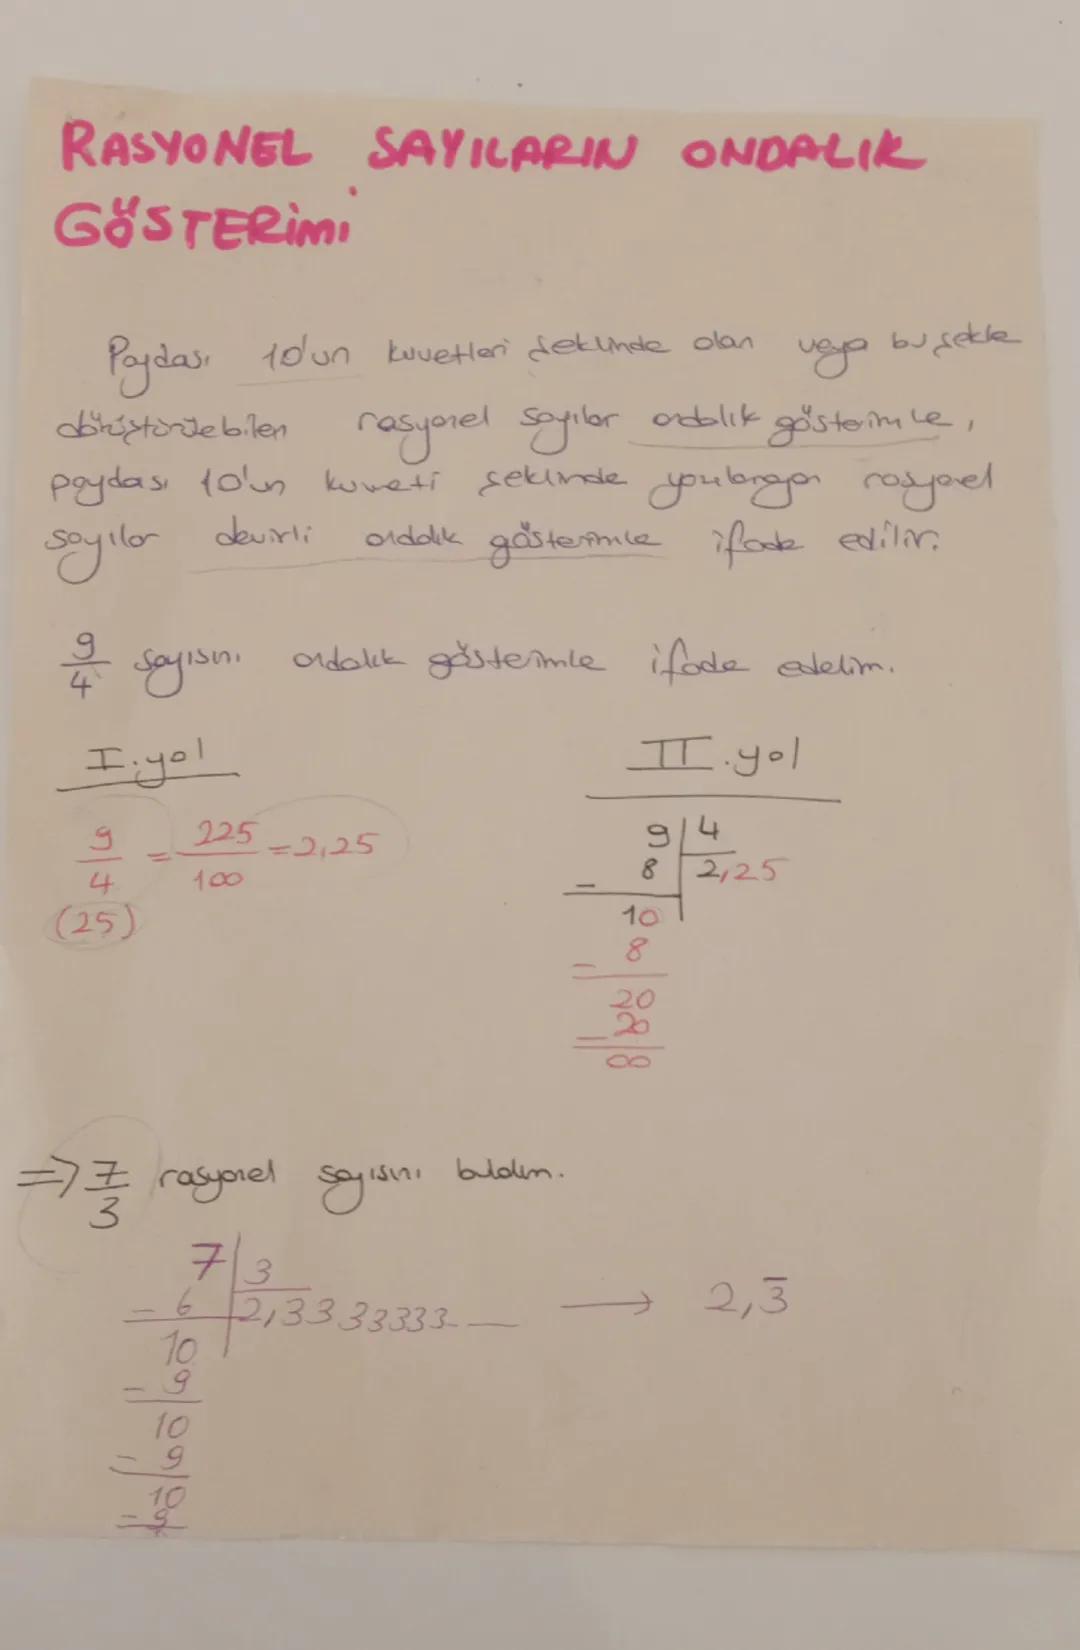 RASYONEL SAYILARIN ONDALIK
GÖSTERİMİ
Paydası 10'un kuvvetleri şeklinde olan veya bu şekle
dönüştürülebilen rasyonel sayılar ondalık gösterimle,
paydası 10'un kuvveti şeklinde yazılamayan rasyonel
sayılar devirli ondalık gösterimle ifade edilir.
9/4 sayısını ondalık gösterimle ifade edelim.
I.yol
9/4 = 225/100 = 2,25
(25)
II.yol
9 | 4
- 8 | 2,25
10
- 8
20
- 20
00
=> 7/3 rasyonel sayısını bulalım.
7 | 3
- 6 | 2,3333333... → 2,3̅
10
- 9
10
- 9
10
- 9